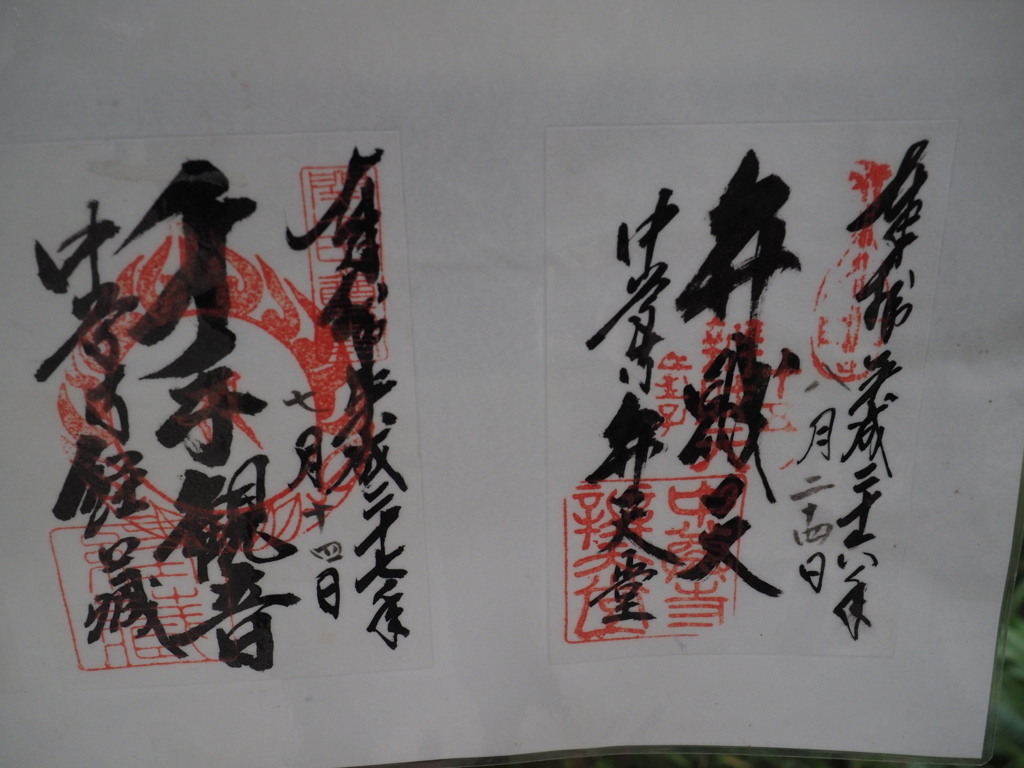 奉拝 平成二十六年
八月二十四日
弁財天
中尊寺 弁天堂
中尊寺
辨天堂
奉拝 平成二十七年
七月十四日
千手観音
中尊寺経蔵